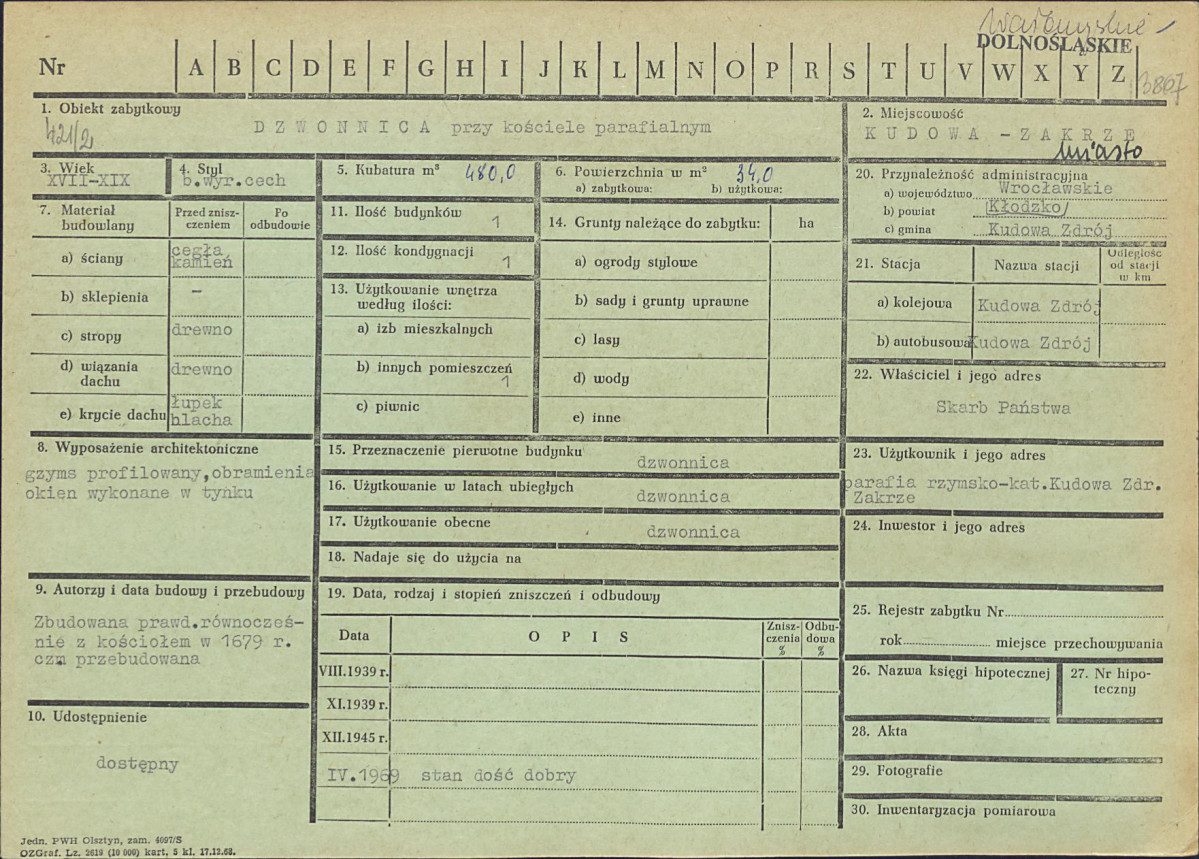 Wałbrzyskie
DOLNOŚLĄSKIE
Nr A B C D E F G H I J K L M N O P R S T U V W X Y Z
3867
1. Obiekt zabytkowy
421/2
DZWONNICA przy kościele parafialnym
2. Miejscowość
KUDOWA - ZAKRZE
miasto
3. Wiek
XVII-XIX
4. Styl
b.wyr.cech
5. Kubatura m³ 480,0
6. Powierzchnia w m² 34,0
a) zabytkowa: b) użytkowa:
20. Przynależność administracyjna
a) województwo Wrocławskie
b) powiat Kłodzko
c) gmina Kudowa Zdrój
7. Materiał budowlany
Przed zniszczeniem
Po odbudowie
a) ściany cegła kamień
b) sklepienia –
c) stropy drewno
d) wiązania dachu drewno
e) krycie dachu łupek blacha
11. Ilość budynków 1
12. Ilość kondygnacji 1
13. Użytkowanie wnętrza
według ilości:
a) izb mieszkalnych
b) innych pomieszczeń 1
c) piwnic
14. Grunty należące do zabytku: ha
a) ogrody stylowe
b) sady i grunty uprawne
c) lasy
d) wody
e) inne
21. Stacja Nazwa stacji Odległość od stacji w km
a) kolejowa Kudowa Zdrój
b) autobusowa Kudowa Zdrój
22. Właściciel i jego adres
Skarb Państwa
8. Wyposażenie architektoniczne
gzyms profilowany,obramienia
okien wykonane w tynku
15. Przeznaczenie pierwotne budynku dzwonnica
16. Użytkowanie w latach ubiegłych dzwonnica
17. Użytkowanie obecne dzwonnica
18. Nadaje się do użycia na
23. Użytkownik i jego adres
parafia rzymsko-kat.Kudowa Zdr.
Zakrze
24. Inwestor i jego adres
9. Autorzy i data budowy i przebudowy
Zbudowana prawd.równocześ-
nie z kościołem w 1679 r.
czm przebudowana
19. Data, rodzaj i stopień zniszczeń i odbudowy
Data OPIS Zniszczenia % Odbudowa %
VIII.1939 r.
XI.1939 r.
XII.1945 r.
IV.1969 stan dość dobry
25. Rejestr zabytku Nr
rok miejsce przechowywania
26. Nazwa księgi hipotecznej
27. Nr hipoteczny
10. Udostępnienie
dostępny
28. Akta
29. Fotografie
30. Inwentaryzacja pomiarowa
Jedn. PWH Olsztyn, zam. 4097/S
OZGraf. Lz. 2619 (10 000) kart. 5 kl. 17.12.68.